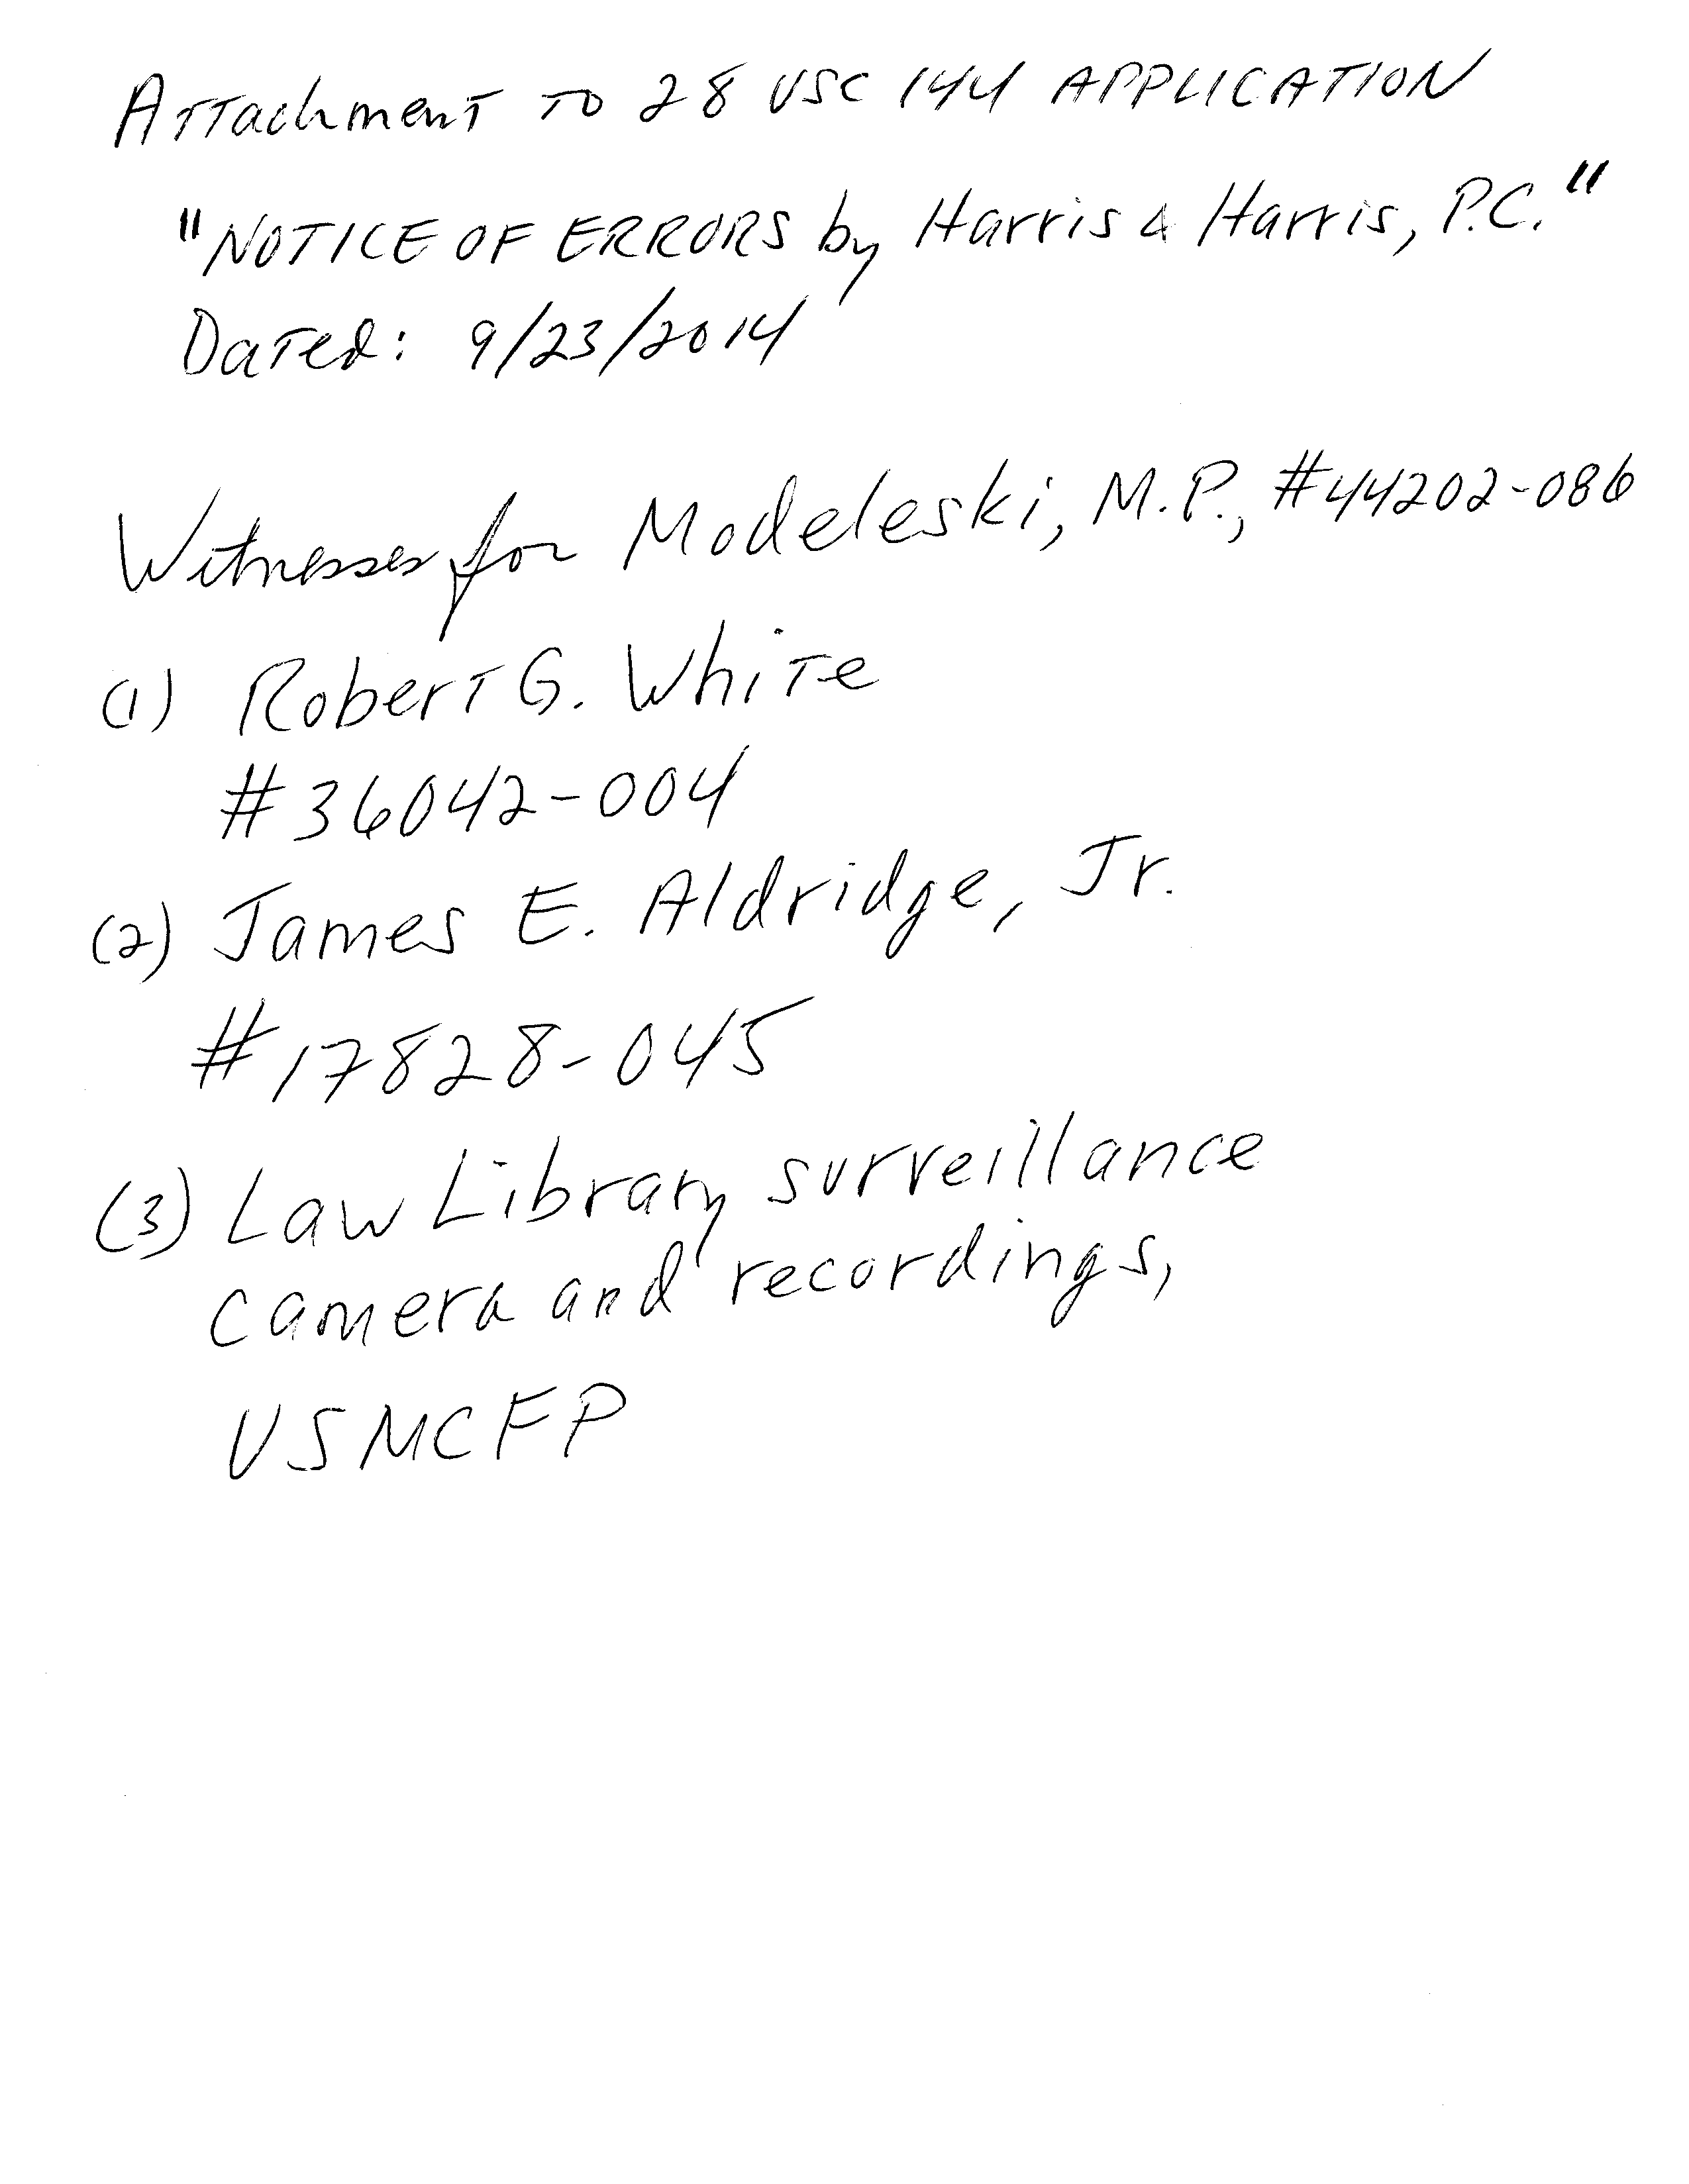 Attachment to 28 USC 144 APPLICATION
"NOTICE OF ERRORS by Harris & Harris, P.C."
Dated: 9/23/2014
Witnesses for Modeleski, M.P., #44202-086
(1) Robert G. White
#36042-004
(2) James E. Aldridge, Jr.
#17828-045
(3) Law Library surveillance
camera and recordings,
USMCFP